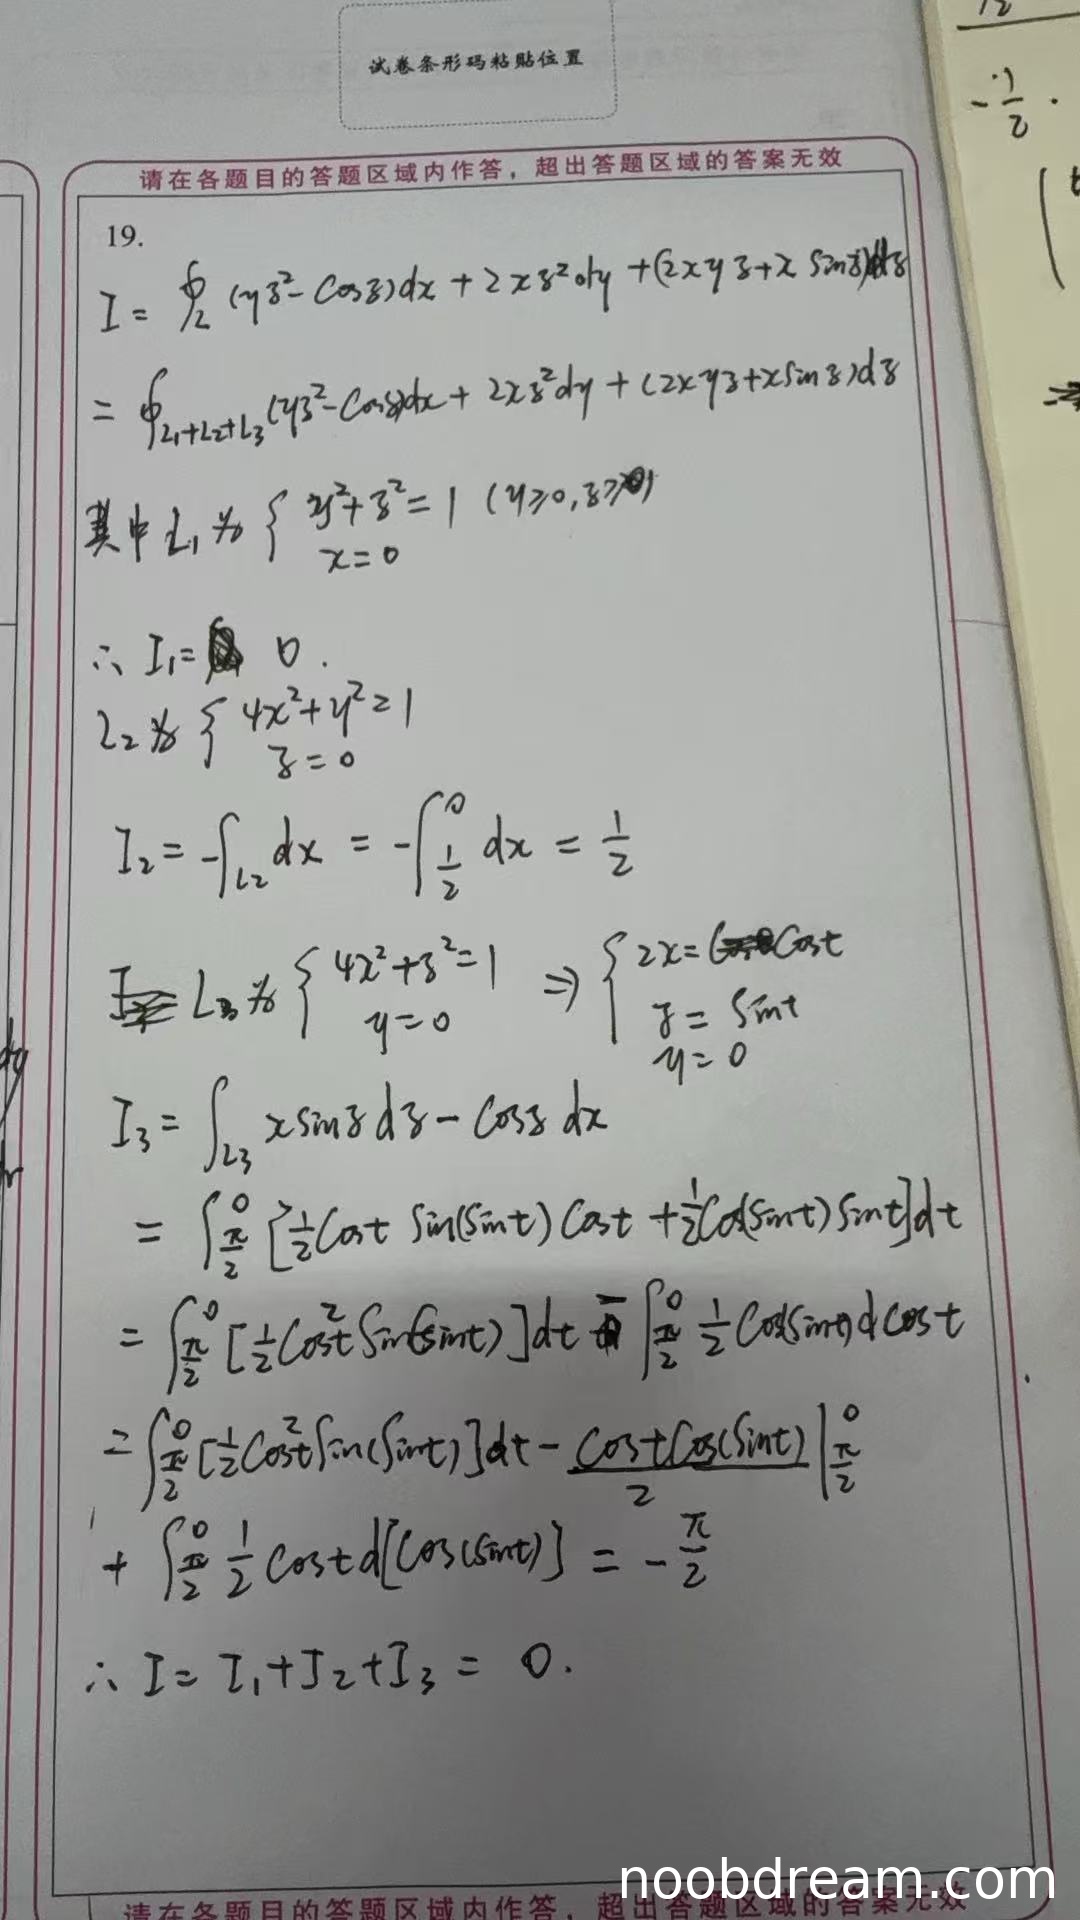 试卷条形码粘贴位置
请在各题目的答题区域内作答，超出答题区域的答案无效
19.
I = ∮_L (yz²-cosz)dx + 2xz²dy + (2xyz+x sinz)dz
= ∮_{L₁+L₂+L₃} (yz²-cosz)dx + 2xz²dy + (2xyz+xsinz)dz
其中 L₁为 { y²+z²=1 (y≥0,z≥0)
x=0
∴ I₁= 0.
L₂为 { 4x²+y²=1
z=0
I₂ = -∫_{L₂} dx = -∫_{1/2}^0 dx = 1/2
L₃为 { 4x²+z²=1 ⇒ { 2x=cost
y=0 z=sint
y=0
I₃ = ∫_{L₃} xsinzdz - cosz dx
= ∫_{π/2}^0 [1/2 cost sin(sint) cost + 1/2 cos(sint) sint]dt
= ∫_{π/2}^0 [1/2 cos²t sin(sint)]dt - ∫_{π/2}^0 1/2 cos(sint)dcost
= ∫_{π/2}^0 [1/2 cos²t sin(sint)]dt - costcos(sint)/2 |_{π/2}^0
+ ∫_{π/2}^0 1/2 cost d[cos(sint)] = -π/2
∴ I = I₁+I₂+I₃ = 0.
请在各题目的答题区域内作答，超出答题区域的答案无效
noobdream.com
-1/2 .